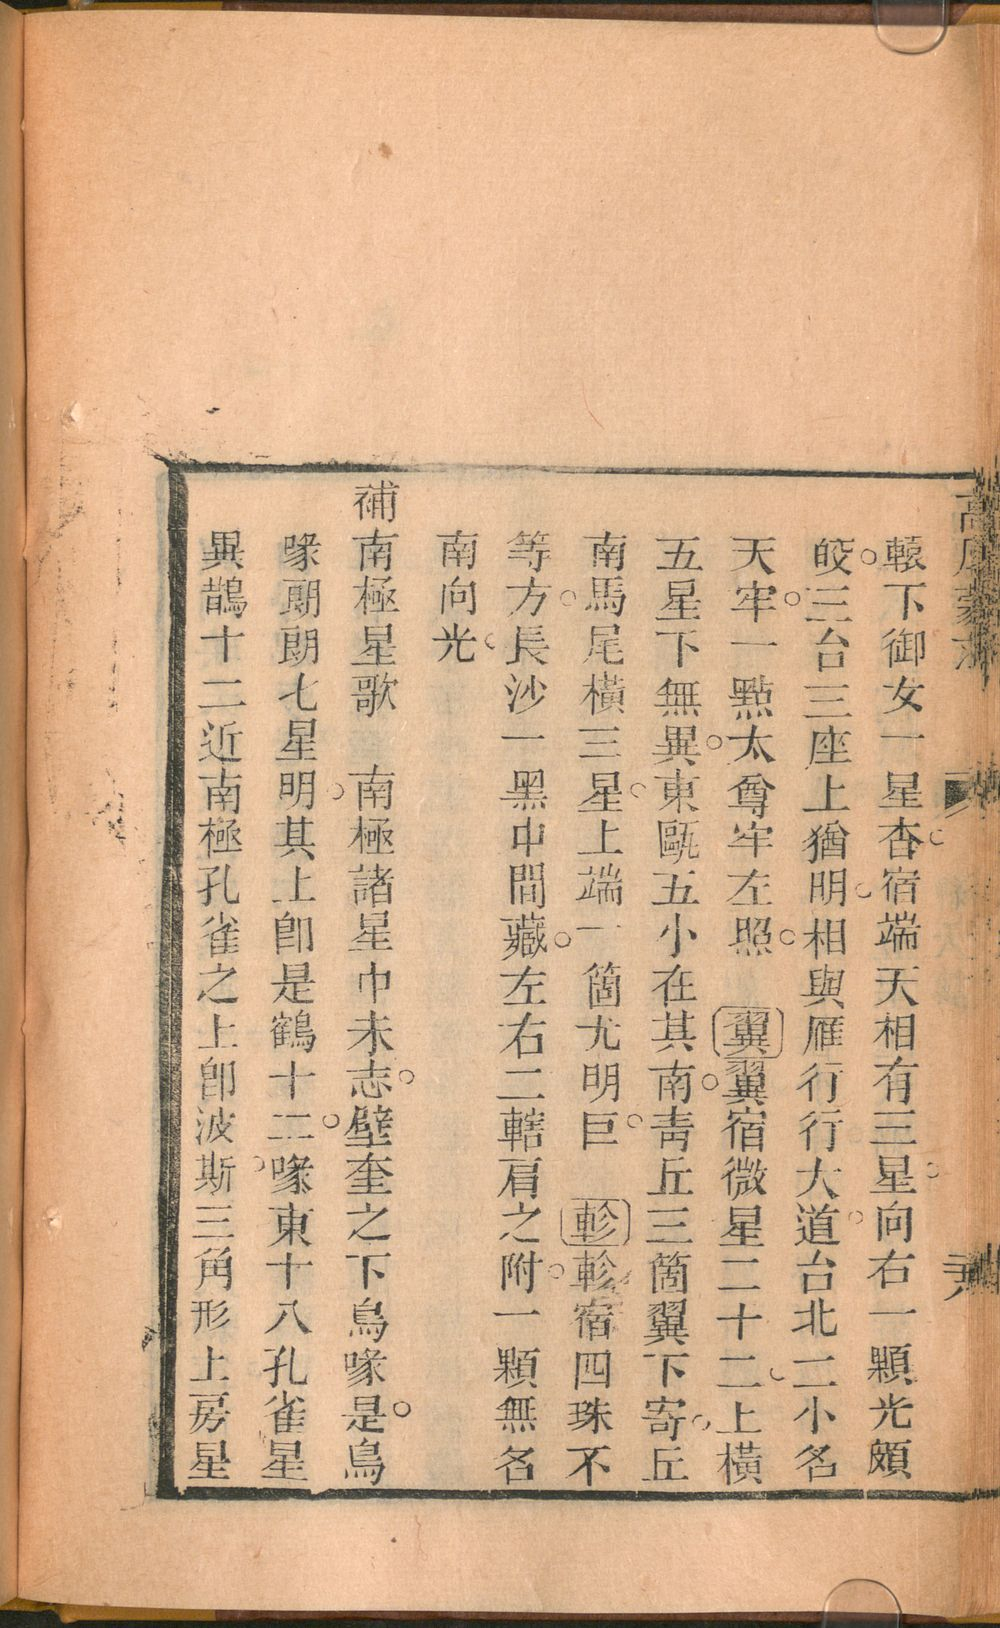 轅下御女一星杳宿端天相有三星向右一顆光頗
皎三台三座上猶明相與雁行行大道台北二小名
天牢一點太尊牢左照 翼翼宿微星二十二上橫
五星下無異東甌五小在其南青丘三箇翼下寄丘
南馬尾橫三星上端一箇尤明巨 軫軫宿四珠不
等方長沙一黑中間藏左右二轄肩之附一顆無名
南向光
補南極星歌 南極諸星巾未志壁奎之下鳥喙是鳥
喙朗朗七星明其上卽是鶴十二喙東十八孔雀星
異鵲十二近南極孔雀之上卽波斯三角形上房星